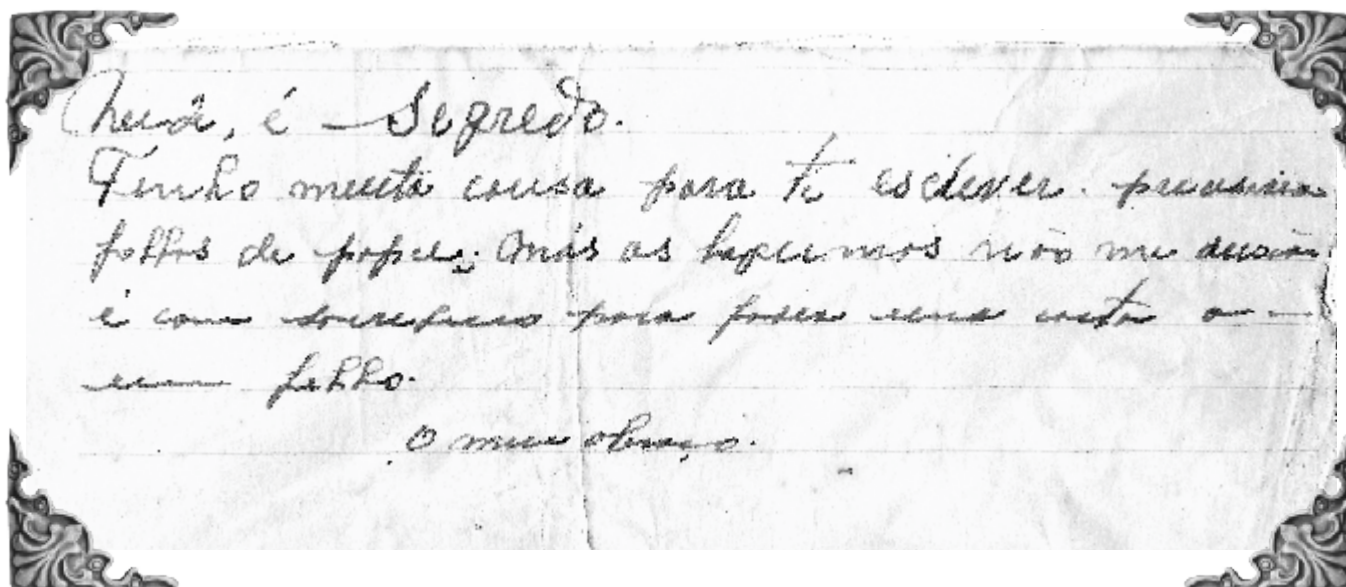 é Segredo.
Tinho muita cousa para ti esclever. precisaria
folhas de papel; más as lagrimas não me deixão
é com para fazer uma carta a
um filho.
O meu abraço.